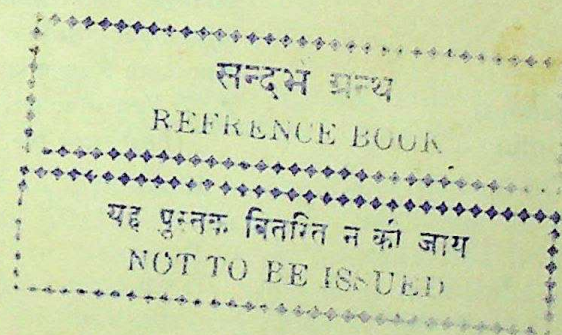 सन्दर्भ ग्रन्थ
REFRENCE BOOK
यह पुस्तक वितरित न की जाय
NOT TO BE ISSUED